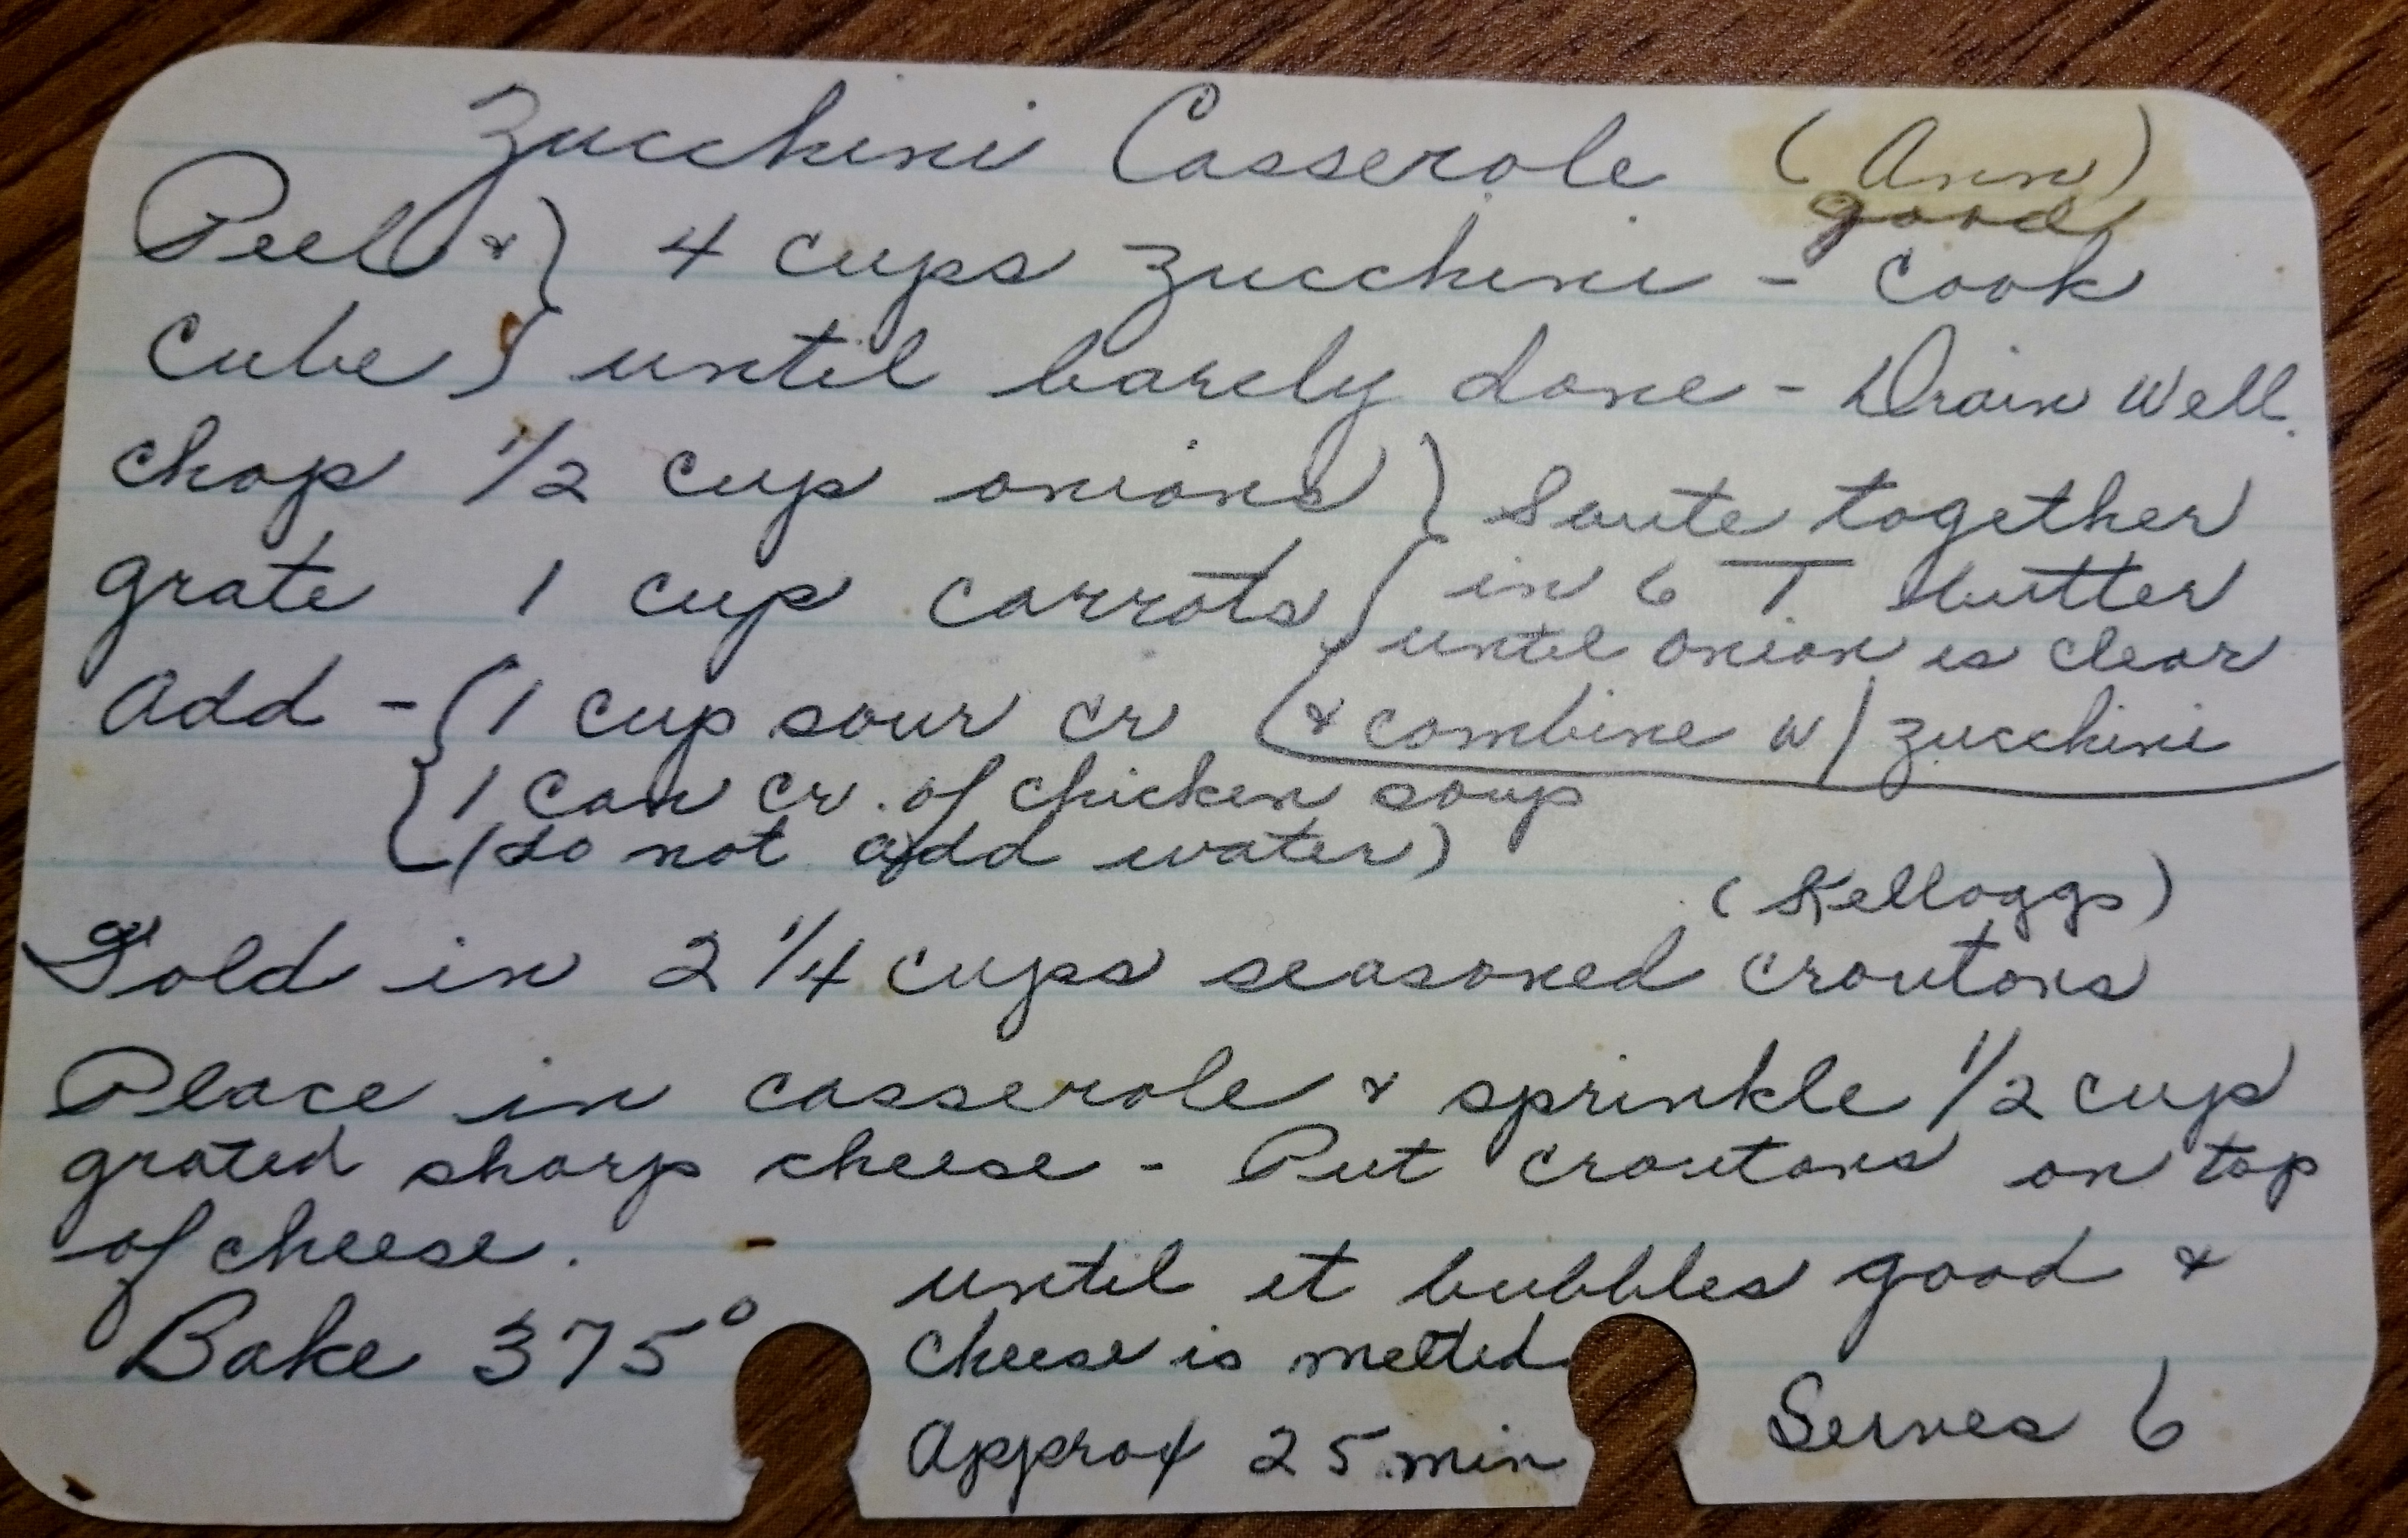 Zucchini Casserole (Ann)
good
Peel & } 4 cups zucchini - Cook
Cube } until barely done - Drain Well.
chop 1/2 cup onions } Saute together
grate 1 cup carrots in 6 T butter
until onion is clear
Add - { 1 cup sour cr & combine w/ zucchini
1 can cr. of chicken soup
(do not add water)
(Kelloggs)
Fold in 2 1/4 cups seasoned croutons
Place in casserole & sprinkle 1/2 cup
grated sharp cheese - Put croutons on top
of cheese.
Bake 375° until it bubbles good &
cheese is melted
Approx 25 min Serves 6